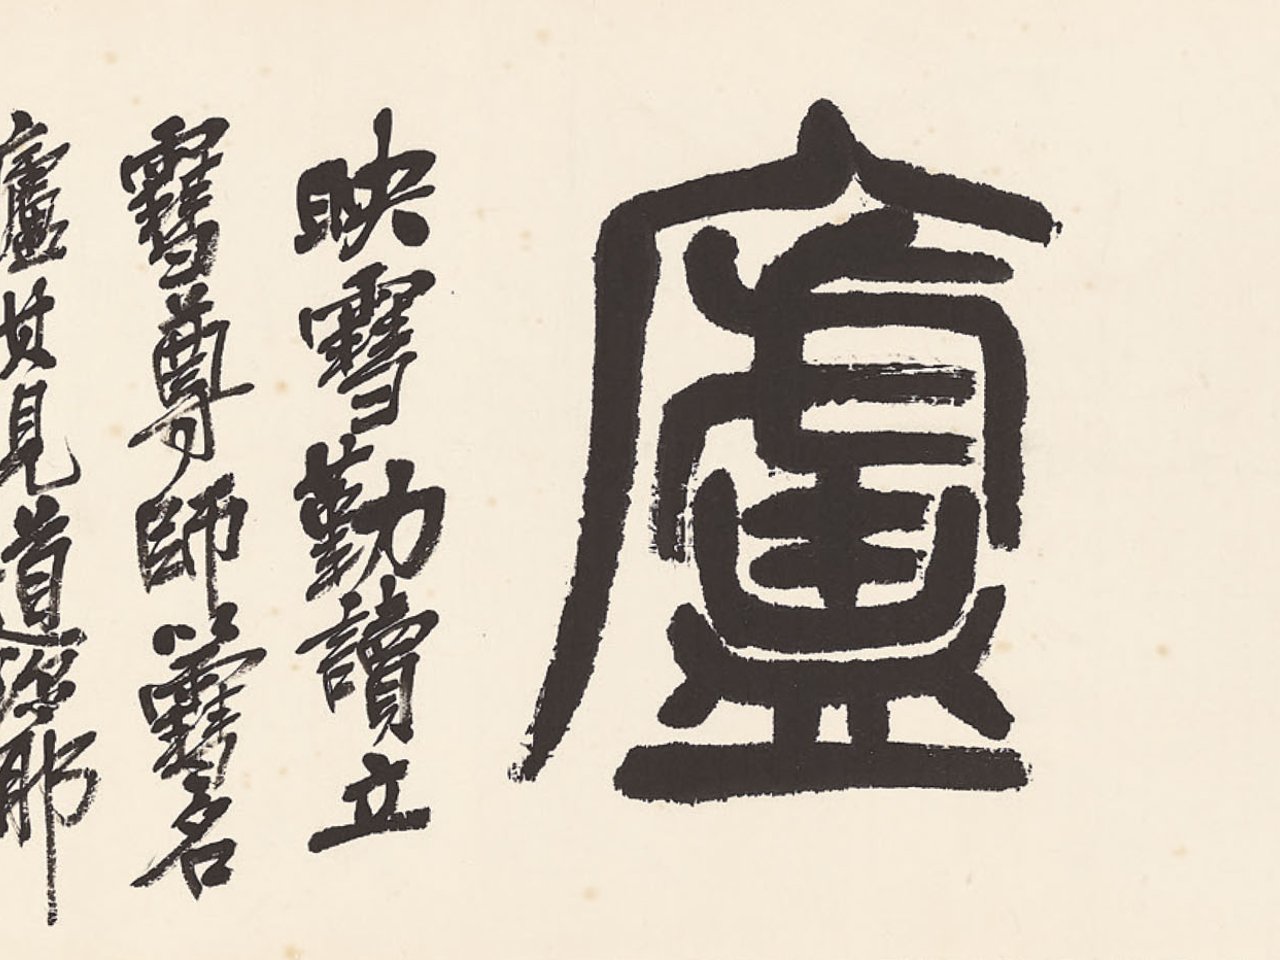 廬
映雪勤讀立
雪尊師以雪名
廬其見道深耶